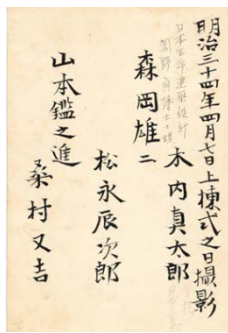 明治三十四年四月七日上棟式之日撮影
木内真太郎
森岡雄二
松永辰次郎
山本鑑之進
桑村又吉